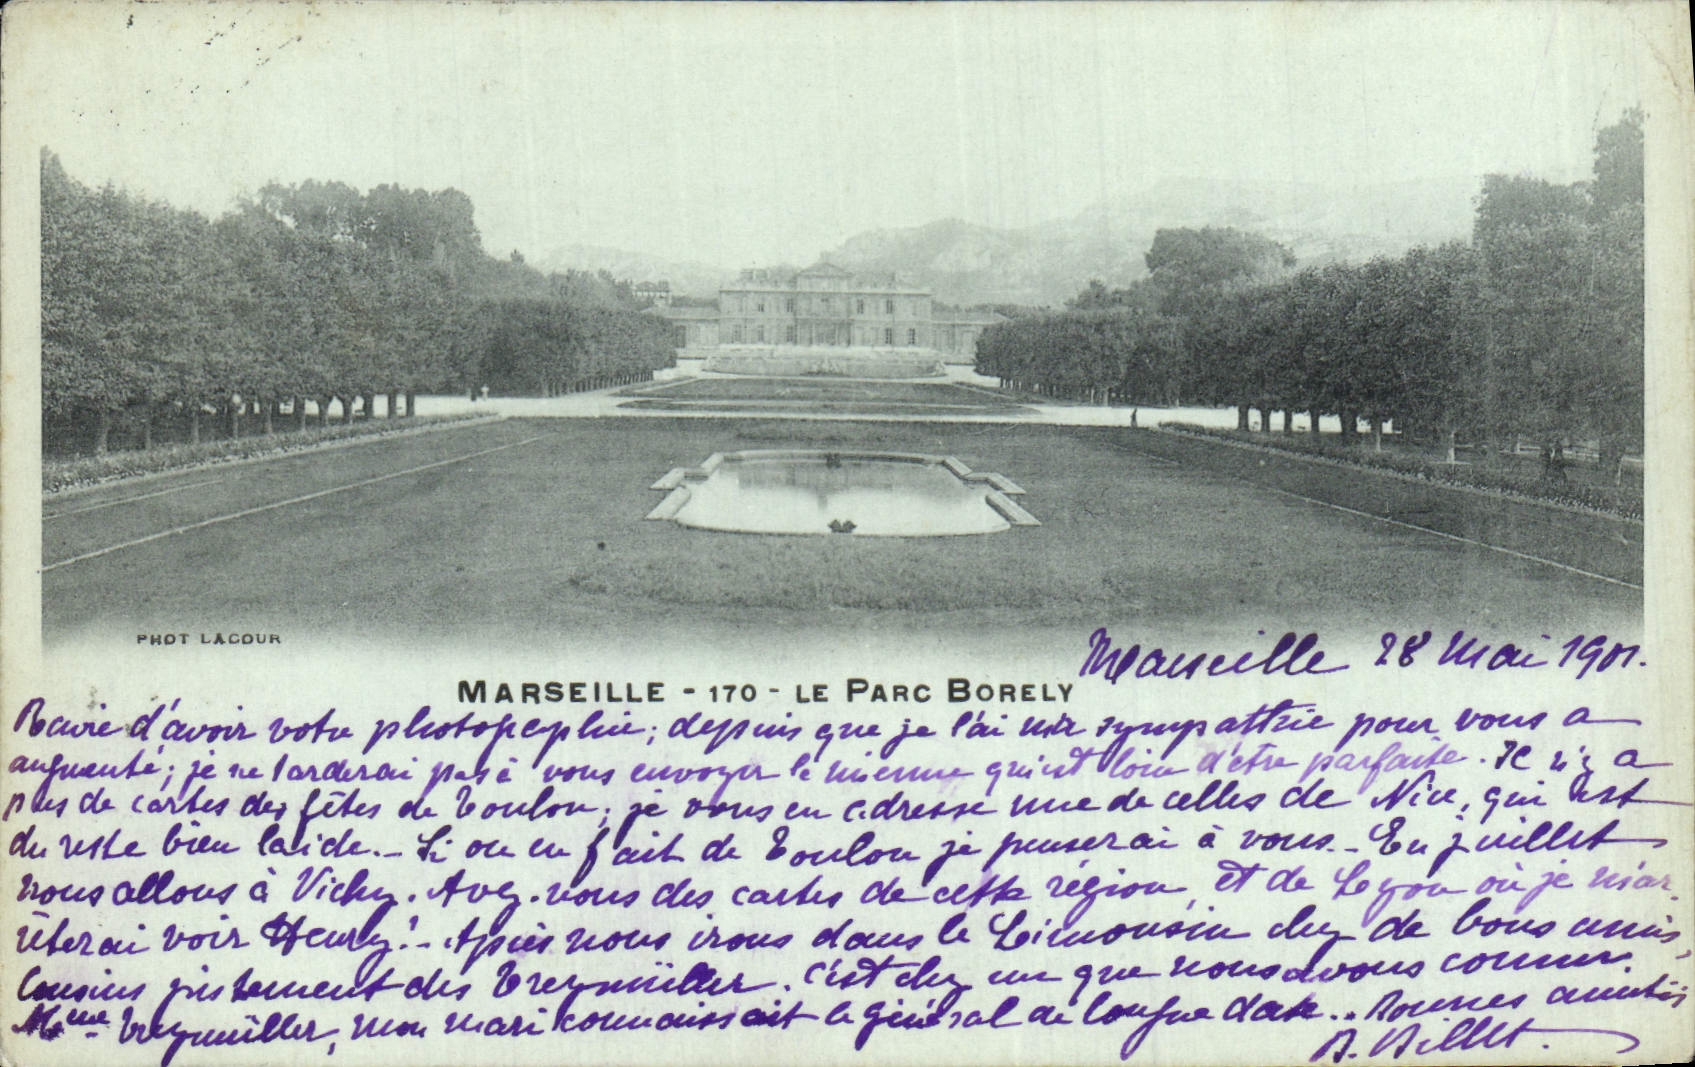 PHOT LACOUR
Marseille 28 Mai 1901.
MARSEILLE - 170 - LE PARC BORELY
Ravie d'avoir votre photographie; depuis que je l'ai ma sympathie pour vous a
augmenté; je ne tarderai pas à vous envoyer la mienne qui est loin d'être parfaite. Il n'y a
pas de cartes des fêtes de Toulon; je vous en adresse une de celles de Nice, qui est
du reste bien laide. - Si on en fait de Toulon je penserai à vous. - En juillet
nous allons à Vichy. Avez-vous des cartes de cette région, et de Lyon où je m'ar-
rêterai voir Henry! - Après nous irons dans le Limousin chez de bons amis,
Cousins justement des Treymüller. C'est chez eux que nous avons connu
Mme Treymüller, mon mari connaissait le général de longue date.. Bonnes amitiés
B. Billet.